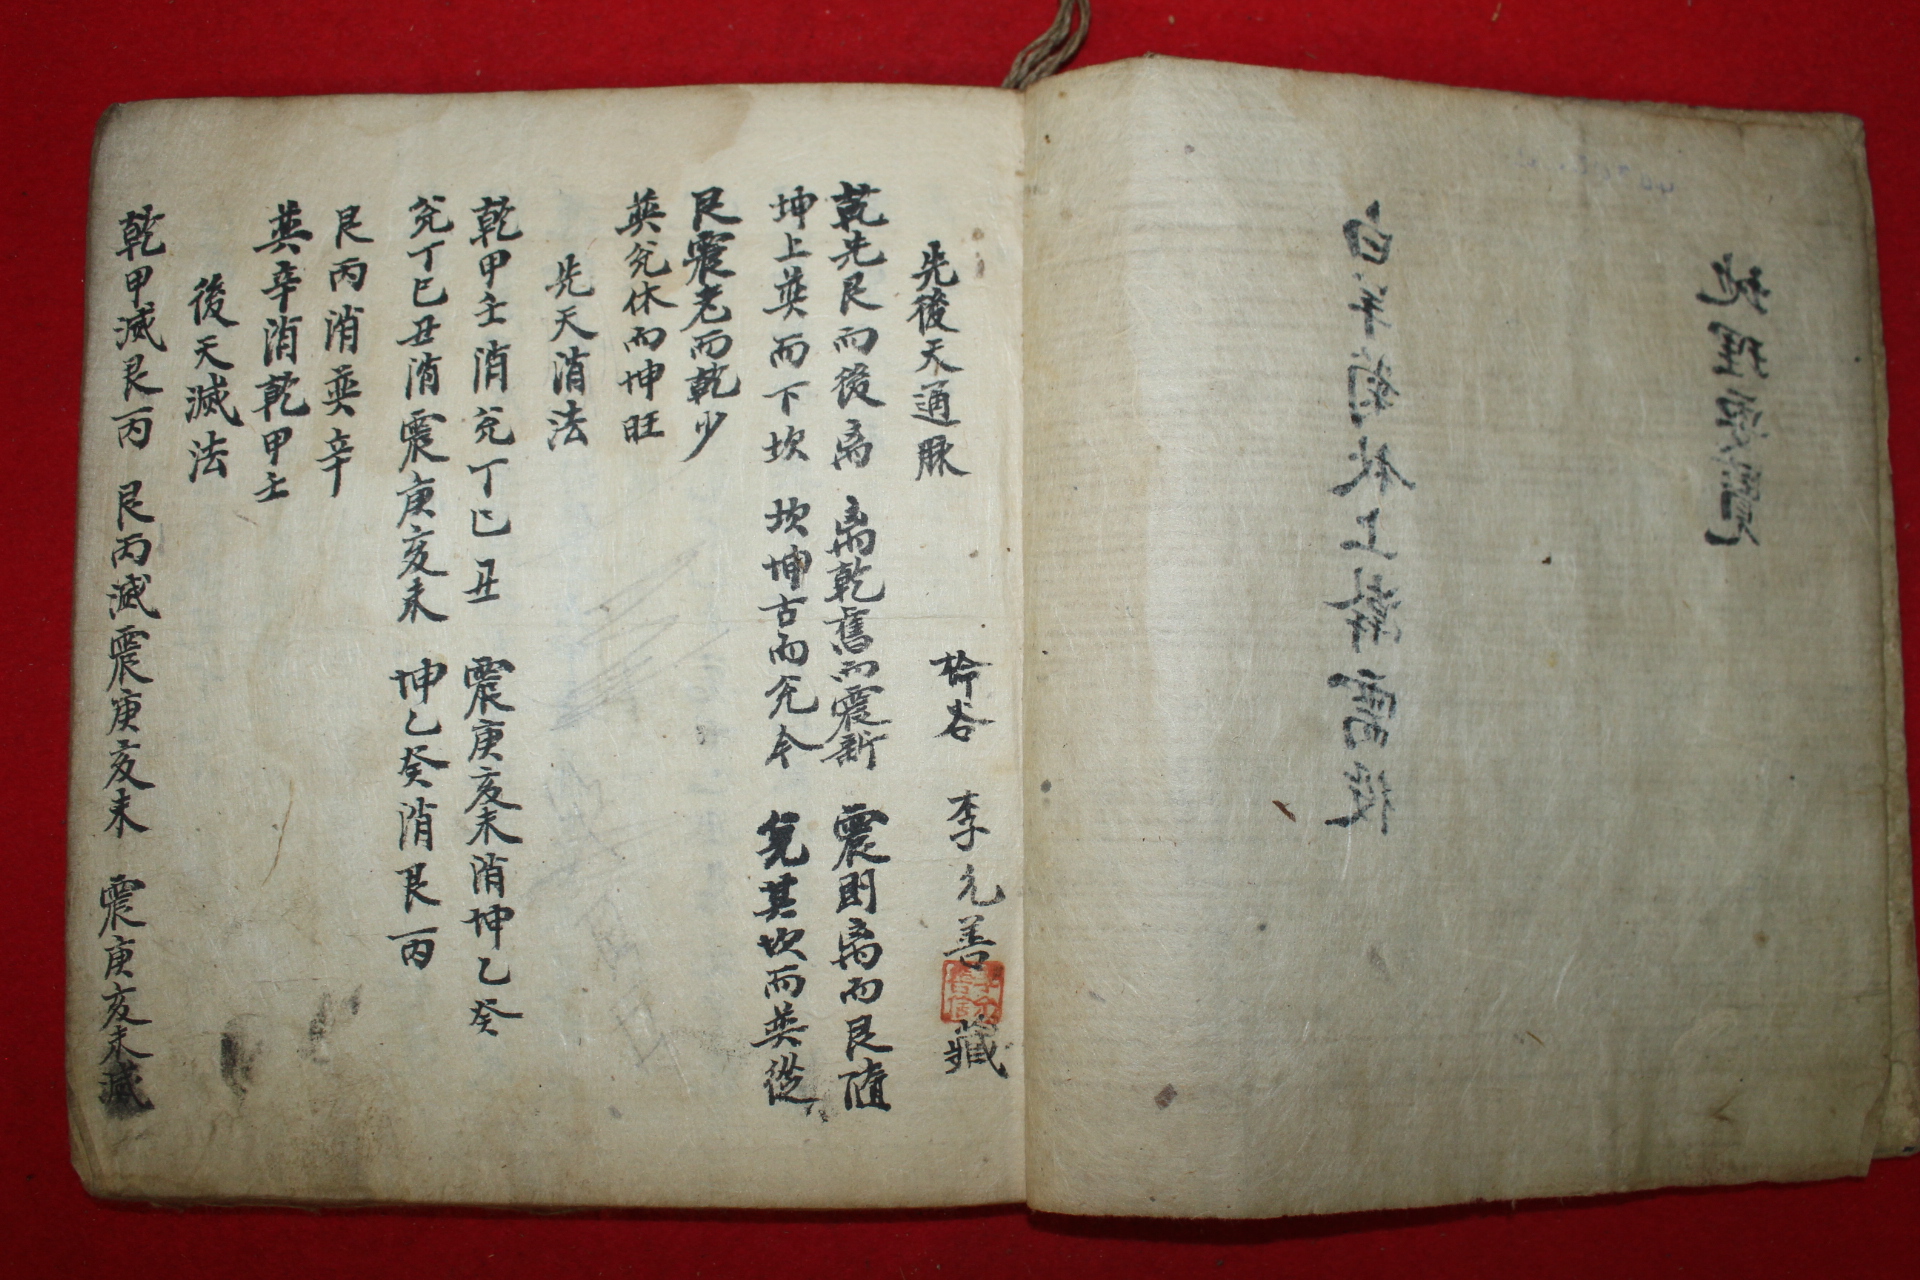 地理要覽
白羊菊秋上
先後天通脉 谷 李元善 藏
乾先艮而後离 离乾舊而震新 震則离而艮隨
坤上巽而下坎 坎坤古而兊今 兊其坎而巽從
艮震老而乾少
巽兊休而坤旺
先天消法
乾甲壬消兊丁巳丑 震庚亥未消坤乙癸
兊丁巳丑消震庚亥未 坤乙癸消艮丙
艮丙消巽辛
巽辛消乾甲壬
後天滅法
乾甲滅艮丙 艮丙滅震庚亥未 震庚亥未滅